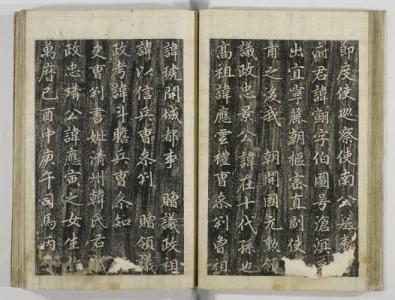 節度使巡察使南公墓表
府君諱翧字伯圖号滄溟
出宜寧麗朝樞密直副使
甫之後我 朝開國元勳領
議政忠景公諱在十代孫也
高祖諱應雲禮曹參判曾祖
諱琥開城都事 贈議政祖
諱以信兵曹參判 贈領議
政考諱斗瞻兵曹參知
吏曹判書妣淸州韓氏右議
政忠靖公諱應寅之女生
萬曆己酉中庚午司馬丙